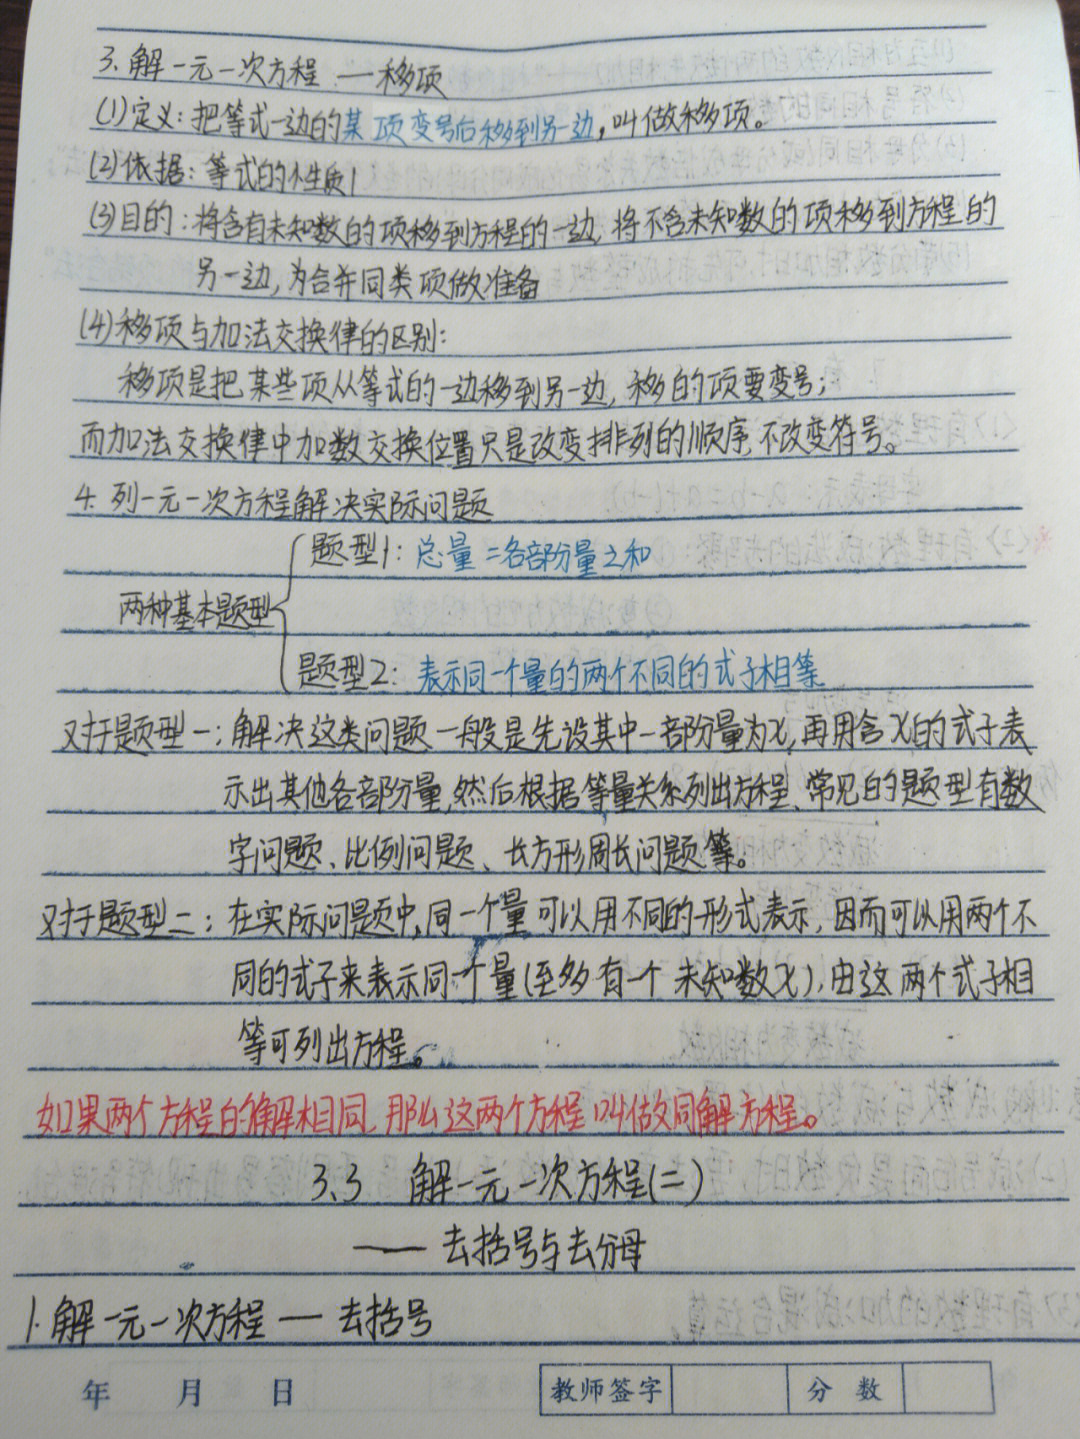 3.解一元一次方程——移项
(1)定义:把等式一边的某项变号后移到另一边,叫做移项。
(2)依据:等式的性质1
(3)目的:将含有未知数的项移到方程的一边,将不含未知数的项移到方程的
另一边,为合并同类项做准备
(4)移项与加法交换律的区别:
移项是把某些项从等式的一边移到另一边,移的项要变号;
而加法交换律中加数交换位置只是改变排列的顺序,不改变符号。
4.列一元一次方程解决实际问题
题型1:总量=各部分量之和
两种基本题型
题型2:表示同一个量的两个不同的式子相等
对于题型一:解决这类问题一般是先设其中一部分量为x,再用含x的式子表
示出其他各部分量,然后根据等量关系列出方程、常见的题型有数
字问题、比例问题、长方形周长问题等。
对于题型二:在实际问题中,同一个量可以用不同的形式表示,因而可以用两个不
同的式子来表示同一个量(至多有一个未知数x),由这两个式子相
等可列出方程。
如果两个方程的解相同,那么这两个方程叫做同解方程。
3.3 解一元一次方程(二)
——去括号与去分母
1.解一元一次方程——去括号
年 月 日 教师签字 分数